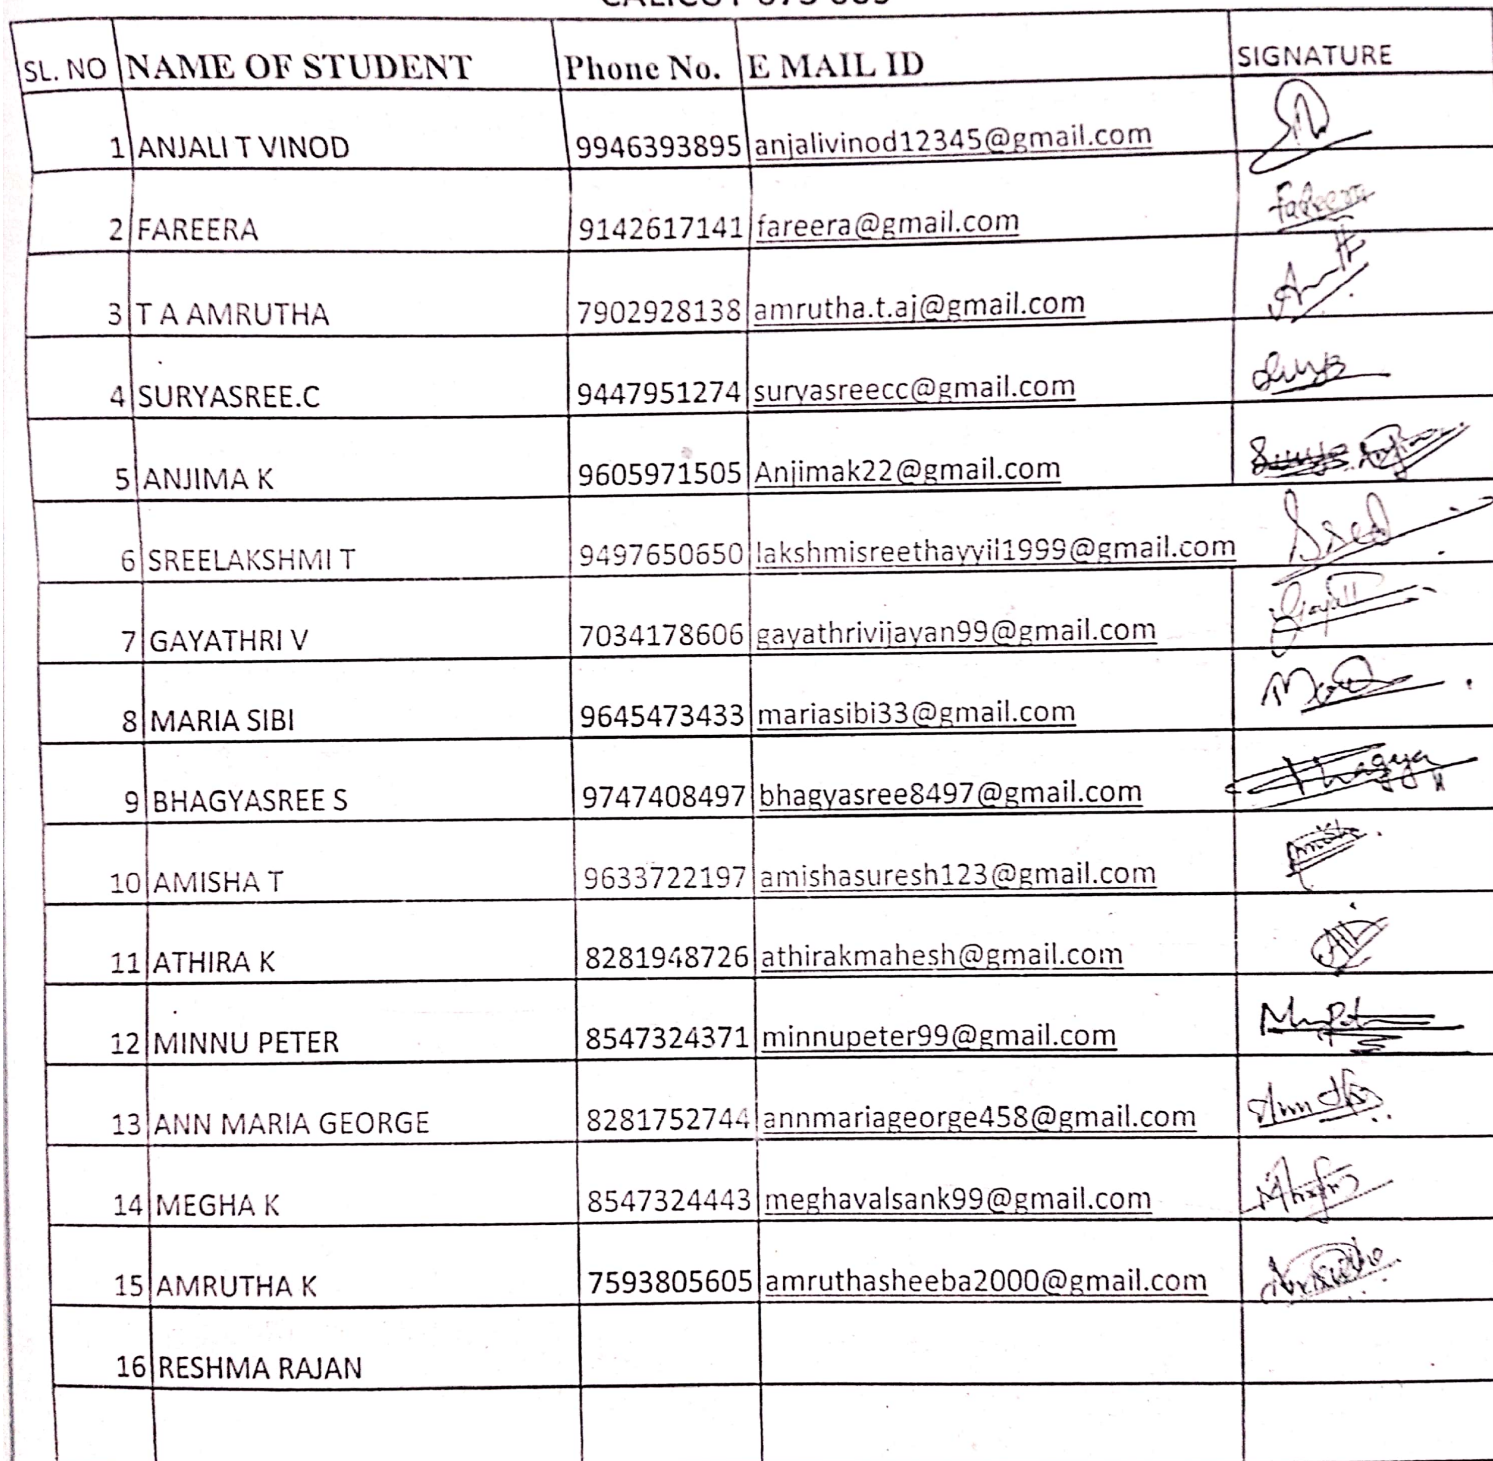 SL. NO NAME OF STUDENT Phone No. E MAIL ID SIGNATURE
1 ANJALI T VINOD 9946393895 anjalivinod12345@gmail.com
2 FAREERA 9142617141 fareera@gmail.com Fareera
3 T A AMRUTHA 7902928138 amrutha.t.aj@gmail.com
4 SURYASREE.C 9447951274 suryasreecc@gmail.com
5 ANJIMA K 9605971505 Anjimak22@gmail.com
6 SREELAKSHMI T 9497650650 lakshmisreethayyil1999@gmail.com
7 GAYATHRI V 7034178606 gayathrivijayan99@gmail.com
8 MARIA SIBI 9645473433 mariasibi33@gmail.com
9 BHAGYASREE S 9747408497 bhagyasree8497@gmail.com
10 AMISHA T 9633722197 amishasuresh123@gmail.com
11 ATHIRA K 8281948726 athirakmahesh@gmail.com
12 MINNU PETER 8547324371 minnupeter99@gmail.com
13 ANN MARIA GEORGE 8281752744 annmariageorge458@gmail.com
14 MEGHA K 8547324443 meghavalsank99@gmail.com
15 AMRUTHA K 7593805605 amruthasheeba2000@gmail.com
16 RESHMA RAJAN